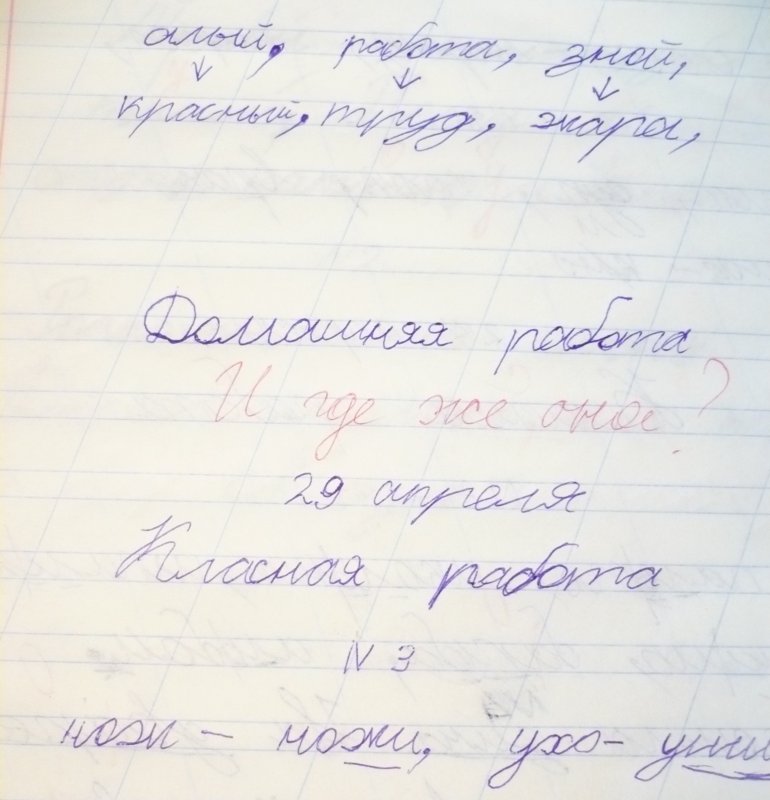 алый, работа, зной,
красный, труд, жара,
Домашняя работа
И где же она?
29 апреля
Класная работа
N 3
нож – ножи, ухо – уши